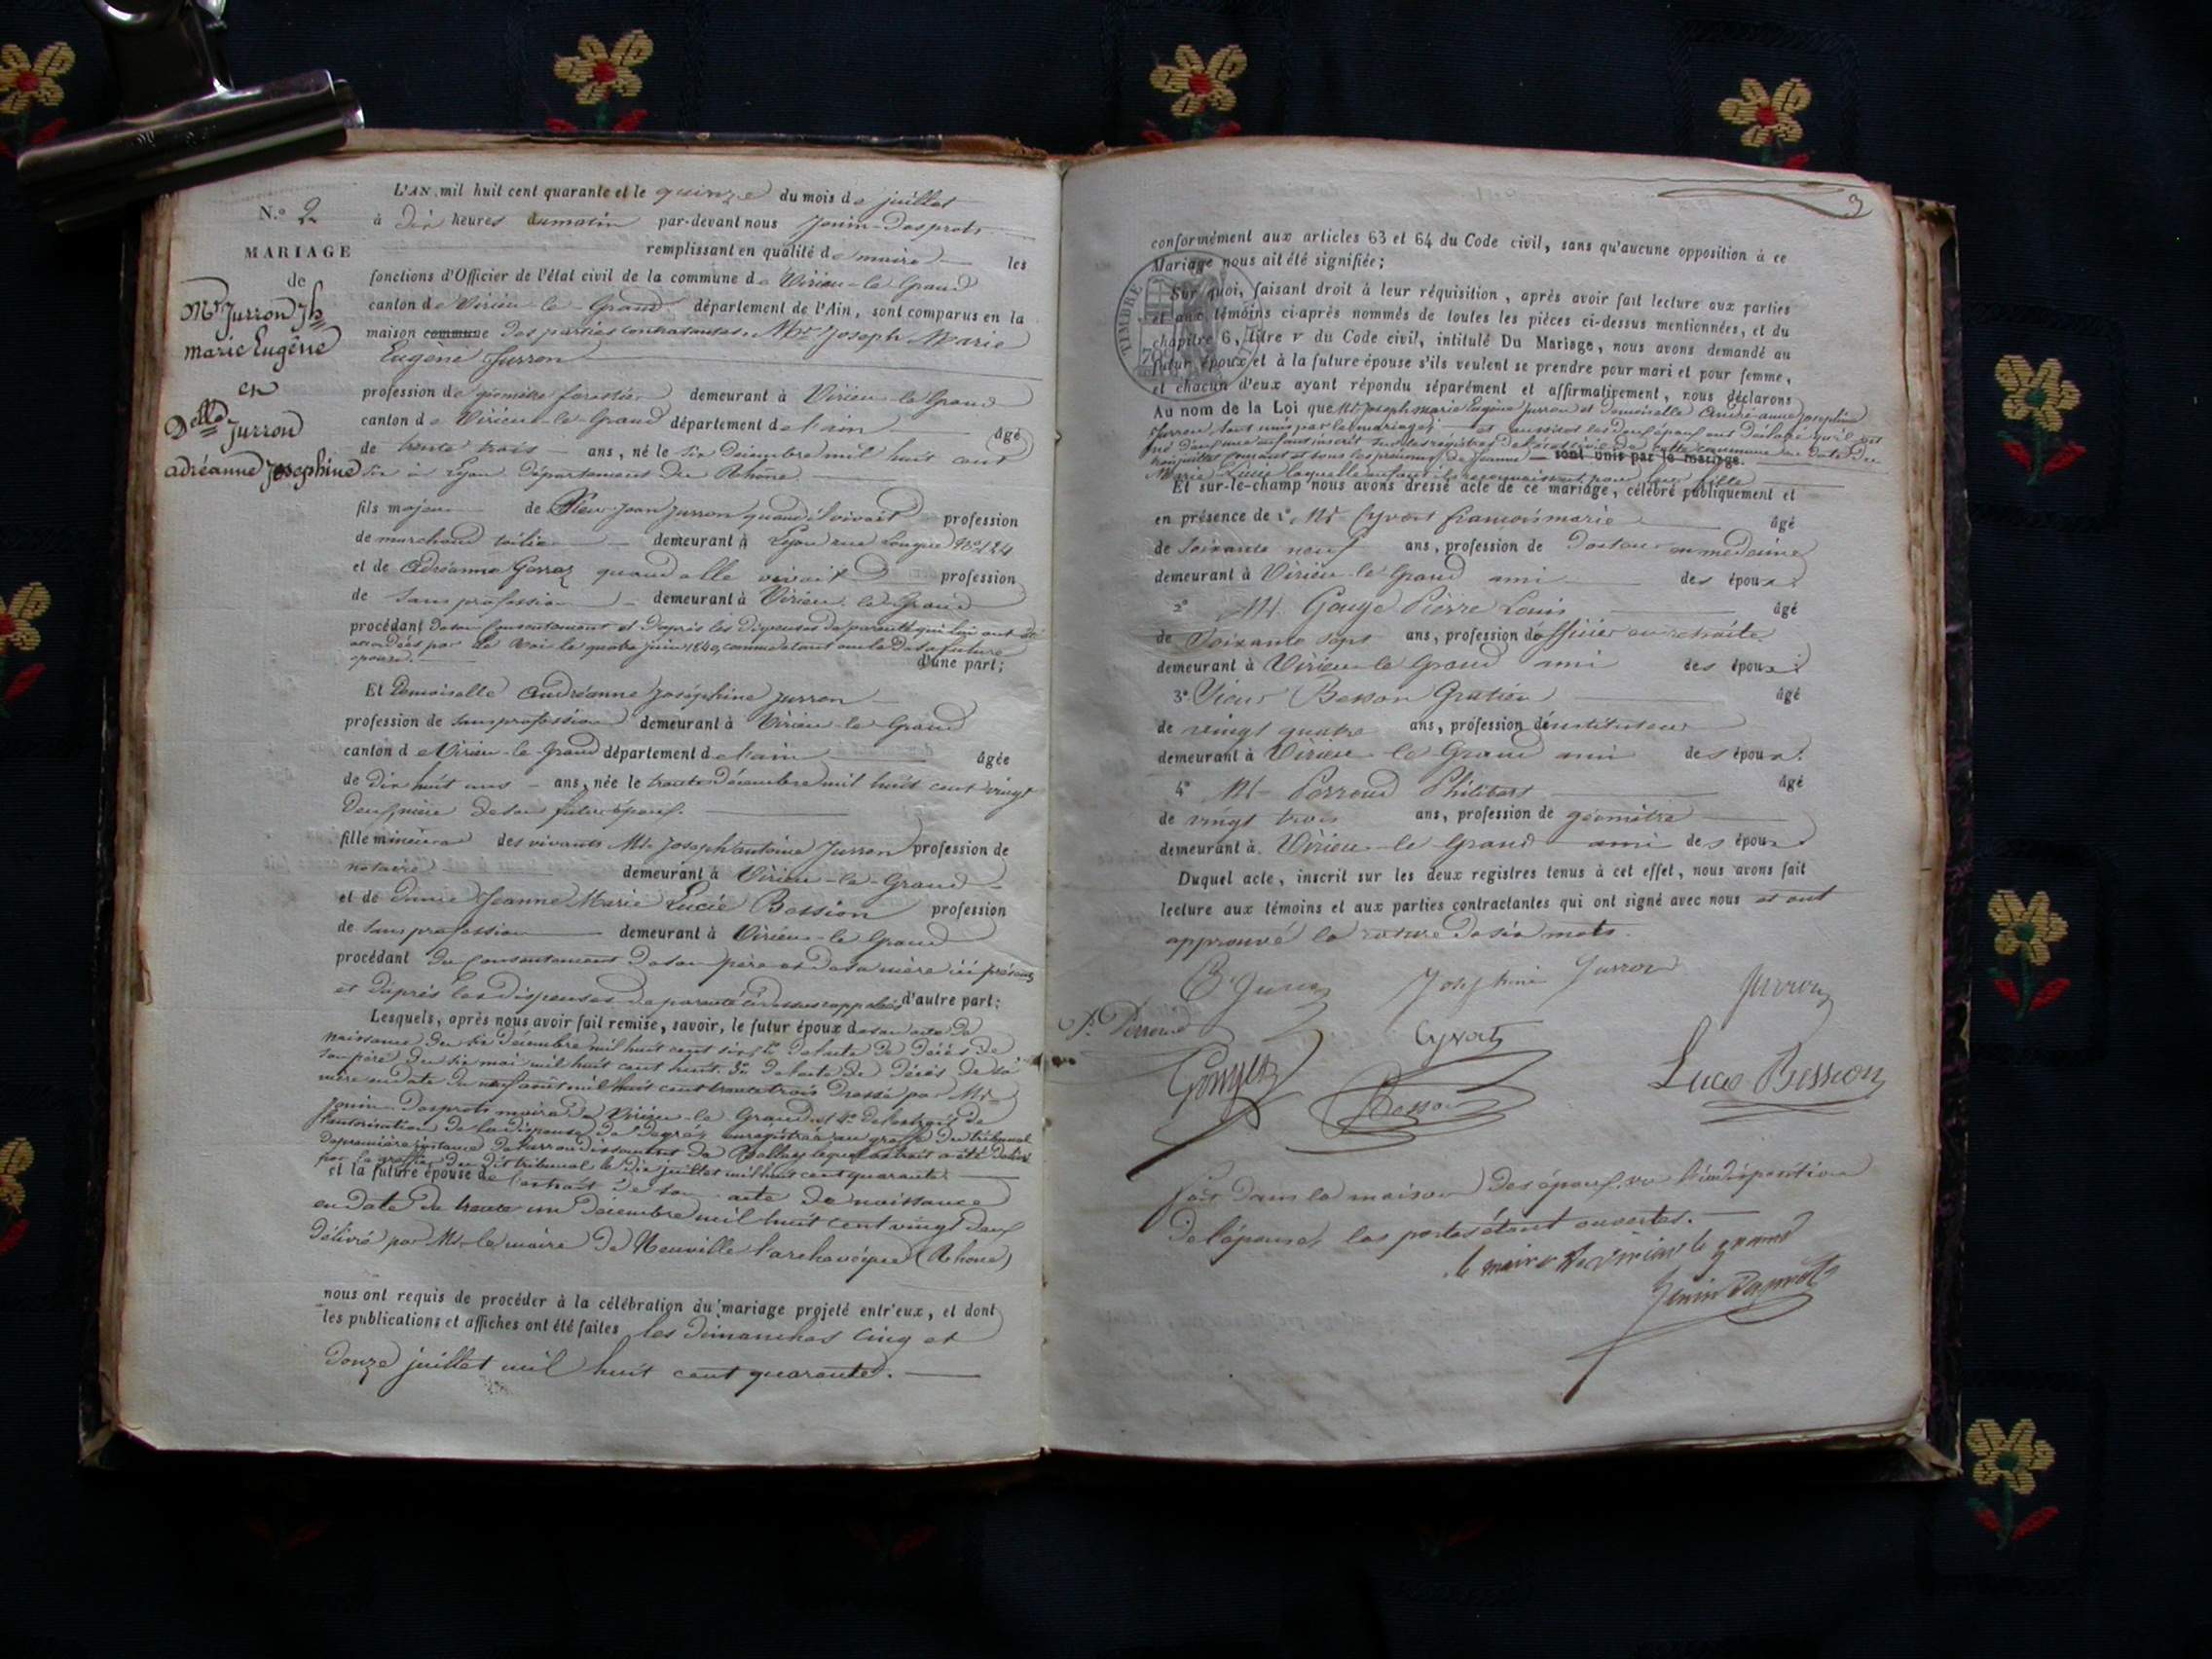 N.° 2
MARIAGE
de
Mr Jurron Jh
marie Eugène
et
Delle Jurron
adréanne Josephine
L'AN mil huit cent quarante et le quinze du mois de juillet
à dix heures du matin par-devant nous Jenin-Desprots
remplissant en qualité de maire les
fonctions d'Officier de l'état civil de la commune de Virieu-le-Grand
canton de Virieu-le-Grand département de l'Ain, sont comparus en la
maison commune des parties contractantes. Mr Joseph Marie
Eugène Jurron
profession de géomètre forestier demeurant à Virieu-le-Grand
canton de Virieu-le-Grand département de l'ain âgé
de trente trois ans, né le six décembre mil huit cent
six à Lyon département du Rhône
fils majeur de Sieur Jean Jurron quand il vivait profession
de marchand toilier demeurant à Lyon rue Longue N° 124
et de Adréanne Gerraz quand elle vivait profession
de sans profession demeurant à Virieu-le-Grand
procédant de son consentement et d'après les dispenses de parenté qui lui ont été
accordées par le Roi le quatre juin 1840, comme étant oncle de sa future
épouse. d'une part;
Et Demoiselle Andréanne Joséphine Jurron
profession de sans profession demeurant à Virieu-le-Grand
canton de Virieu-le-Grand département de l'ain âgée
de dix huit ans ans, née le trente décembre mil huit cent vingt
deux, nièce de son futur époux.
fille mineure des vivants Mr Joseph antoine Jurron profession de
notaire demeurant à Virieu-le-Grand
et de dame Jeanne Marie Lucie Bession profession
de sans profession demeurant à Virieu-le-Grand
procédant du consentement de son père et de sa mère ici présents
et d'après les dispenses de parenté ci-dessus rappelées d'autre part;
Lesquels, après nous avoir fait remise, savoir, le futur époux de son acte de
naissance du six décembre mil huit cent six, 2° de l'acte de décès de
son père du six mai mil huit cent huit. 3° de l'acte de décès de sa
mère en date du neuf août mil huit cent trente trois dressé par Mr
Jenin-Desprots maire de Virieu-le-Grand et 4° de l'extrait de
l'autorisation de la dispense de degrés, enregistrée au greffe du tribunal
de première instance de l'arrondissement de Belley lequel extrait a été délivré
par le greffier du dit tribunal le dix juillet mil huit cent quarante.
et la future épouse de l'extrait de son acte de naissance
en date du trente un décembre mil huit cent vingt deux
délivré par Mr le maire de Neuville l'archevêque (Rhône)
nous ont requis de procéder à la célébration du mariage projeté entr'eux, et dont
les publications et affiches ont été faites les dimanches cinq et
douze juillet mil huit cent quarante.
3
conformément aux articles 63 et 64 du Code civil, sans qu'aucune opposition à ce
Mariage nous ait été signifiée;
TIMBRE
70
Sur quoi, faisant droit à leur réquisition, après avoir fait lecture aux parties
et aux témoins ci-après nommés de toutes les pièces ci-dessus mentionnées, et du
chapitre 6, titre v du Code civil, intitulé Du Mariage, nous avons demandé au
futur époux et à la future épouse s'ils veulent se prendre pour mari et pour femme,
et chacun d'eux ayant répondu séparément et affirmativement, nous déclarons
Au nom de la Loi que Mr Joseph marie Eugène Jurron et demoiselle André-anne Joséphine
Jurron sont unis par le mariage; et aussitôt les deux époux ont déclaré qu'il est
né d'eux une enfant inscrit sur les registres de l'état civil de cette commune en date du
juillet courant et sous les prénoms de Jeanne sont unis par le mariage
Marie Lucie laquelle enfant ils reconnaissent pour leur fille
Et sur-le-champ nous avons dressé acte de ce mariage, célébré publiquement et
en présence de 1° Mr Cyvoct françois marie âgé
de soixante neuf ans, profession de docteur en médecine
demeurant à Virieu-le-Grand ami des époux.
2° Mr Gouge Pierre Louis âgé
de soixante sept ans, profession d'officier en retraite
demeurant à Virieu-le-Grand ami des époux.
3° Sieur Besson Gratien âgé
de vingt quatre ans, profession d'instituteur
demeurant à Virieu-le-Grand ami des époux.
4° Mr Perroud Philibert âgé
de vingt trois ans, profession de géomètre
demeurant à Virieu-le-Grand ami des époux.
Duquel acte, inscrit sur les deux registres tenus à cet effet, nous avons fait
lecture aux témoins et aux parties contractantes qui ont signé avec nous et ont
approuvé la rature de six mots.
E. Jurron Joséphine Jurron Jurron
P. Perroud Cyvoct
Gouge Besson Lucie Bession
Fait dans la maison des époux, vu l'indisposition
de l'épouse, les portes étant ouvertes.
le maire de Virieu le grand
Jenin Desprots